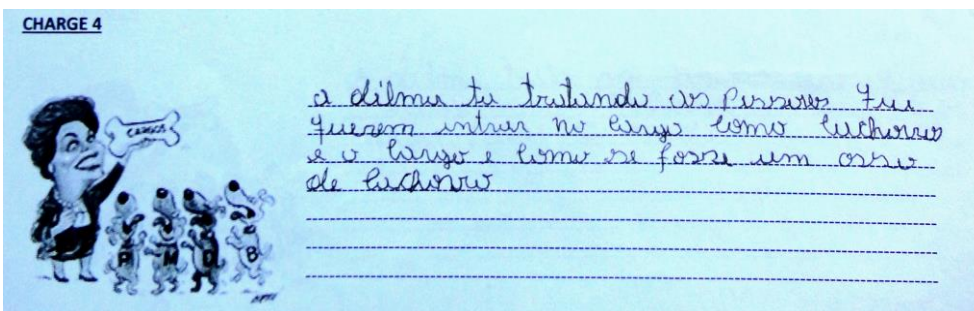 CHARGE 4
CARGOS
P M D B
a dilma ta tratando as pessoas que
querem entrar no cargo como cachorros
e o cargo e como se fosse um osso
de cachorro